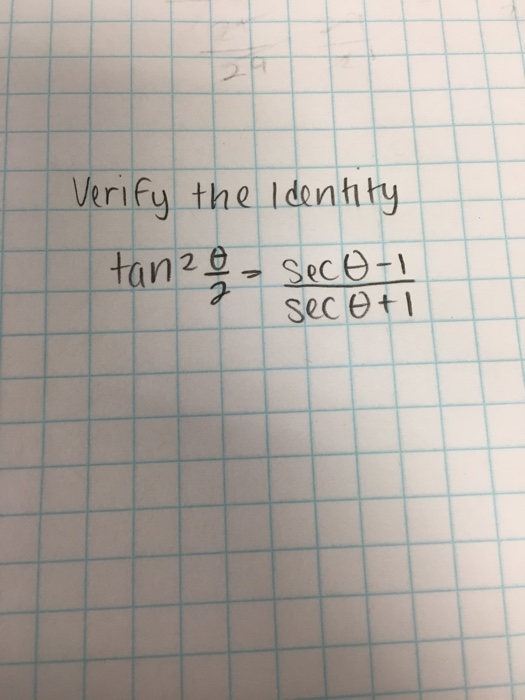 Verify the Identity
tan² θ/2 = sec θ - 1 / sec θ + 1